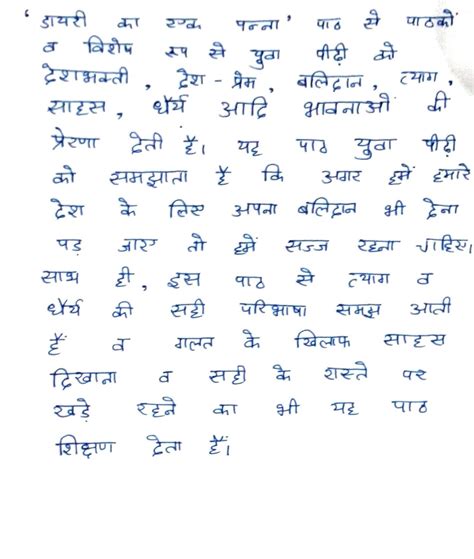 'डायरी का एक पन्ना' पाठ से पाठकों
व विशेष रूप से युवा पीढ़ी को
देशभक्ती, देश-प्रेम, बलिदान, त्याग,
साहस, धैर्य आदि भावनाओं की
प्रेरणा देती है। यह पाठ युवा पीढ़ी
को समझाता है कि अगर हमें हमारे
देश के लिए अपना बलिदान भी देना
पड़ जाए तो हमें सज्ज रहना चाहिए।
साथ ही, इस पाठ से त्याग व
धैर्य की सही परिभाषा समझ आती
हैं व गलत के खिलाफ साहस
दिखाना व सही के रास्ते पर
खड़े रहने का भी यह पाठ
शिक्षण देता हैं।